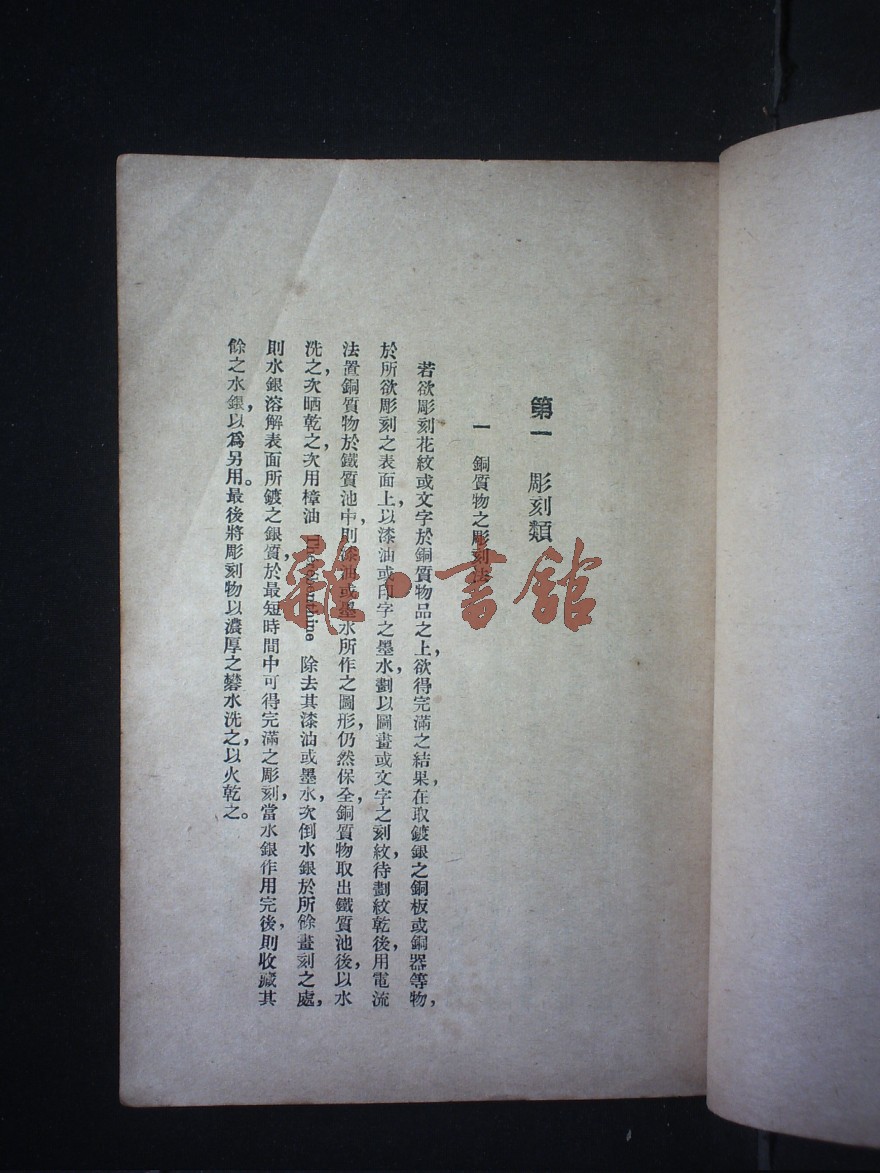 第一　彫刻類
一　銅質物之彫刻法
若欲彫刻花紋或文字於銅質物品之上，欲得完滿之結果，在取鍍銀之銅板或銅器等物，
於所欲彫刻之表面上，以漆油或印字之墨水，劃以圖畫或文字之刻紋，待劃紋乾後，用電流
法置銅質物於鐵質池中，則漆油或墨水所作之圖形，仍然保全，銅質物取出鐵質池後，以水
洗之，次晒乾之，次用樟油 除去其漆油或墨水，次倒水銀於所餘畫刻之處，
則水銀溶解表面所鍍之銀質，於最短時間中可得完滿之彫刻，當水銀作用完後，則收藏其
餘之水銀，以爲另用。最後將彫刻物以濃厚之礬水洗之，以火乾之。
雜·書館